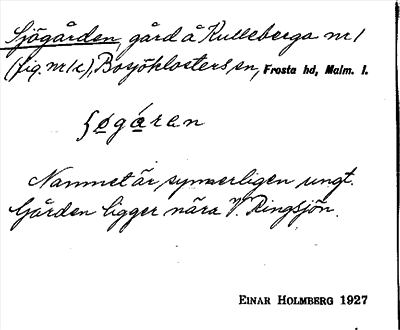 Sjögården, gård å Kulleberga nr 1
(fig. nr 1c), Bosjöklosters sn, Frosta hd, Malm. l.
Namnet är synnerligen ungt.
Gården ligger nära V. Ringsjön.
EINAR HOLMBERG 1927